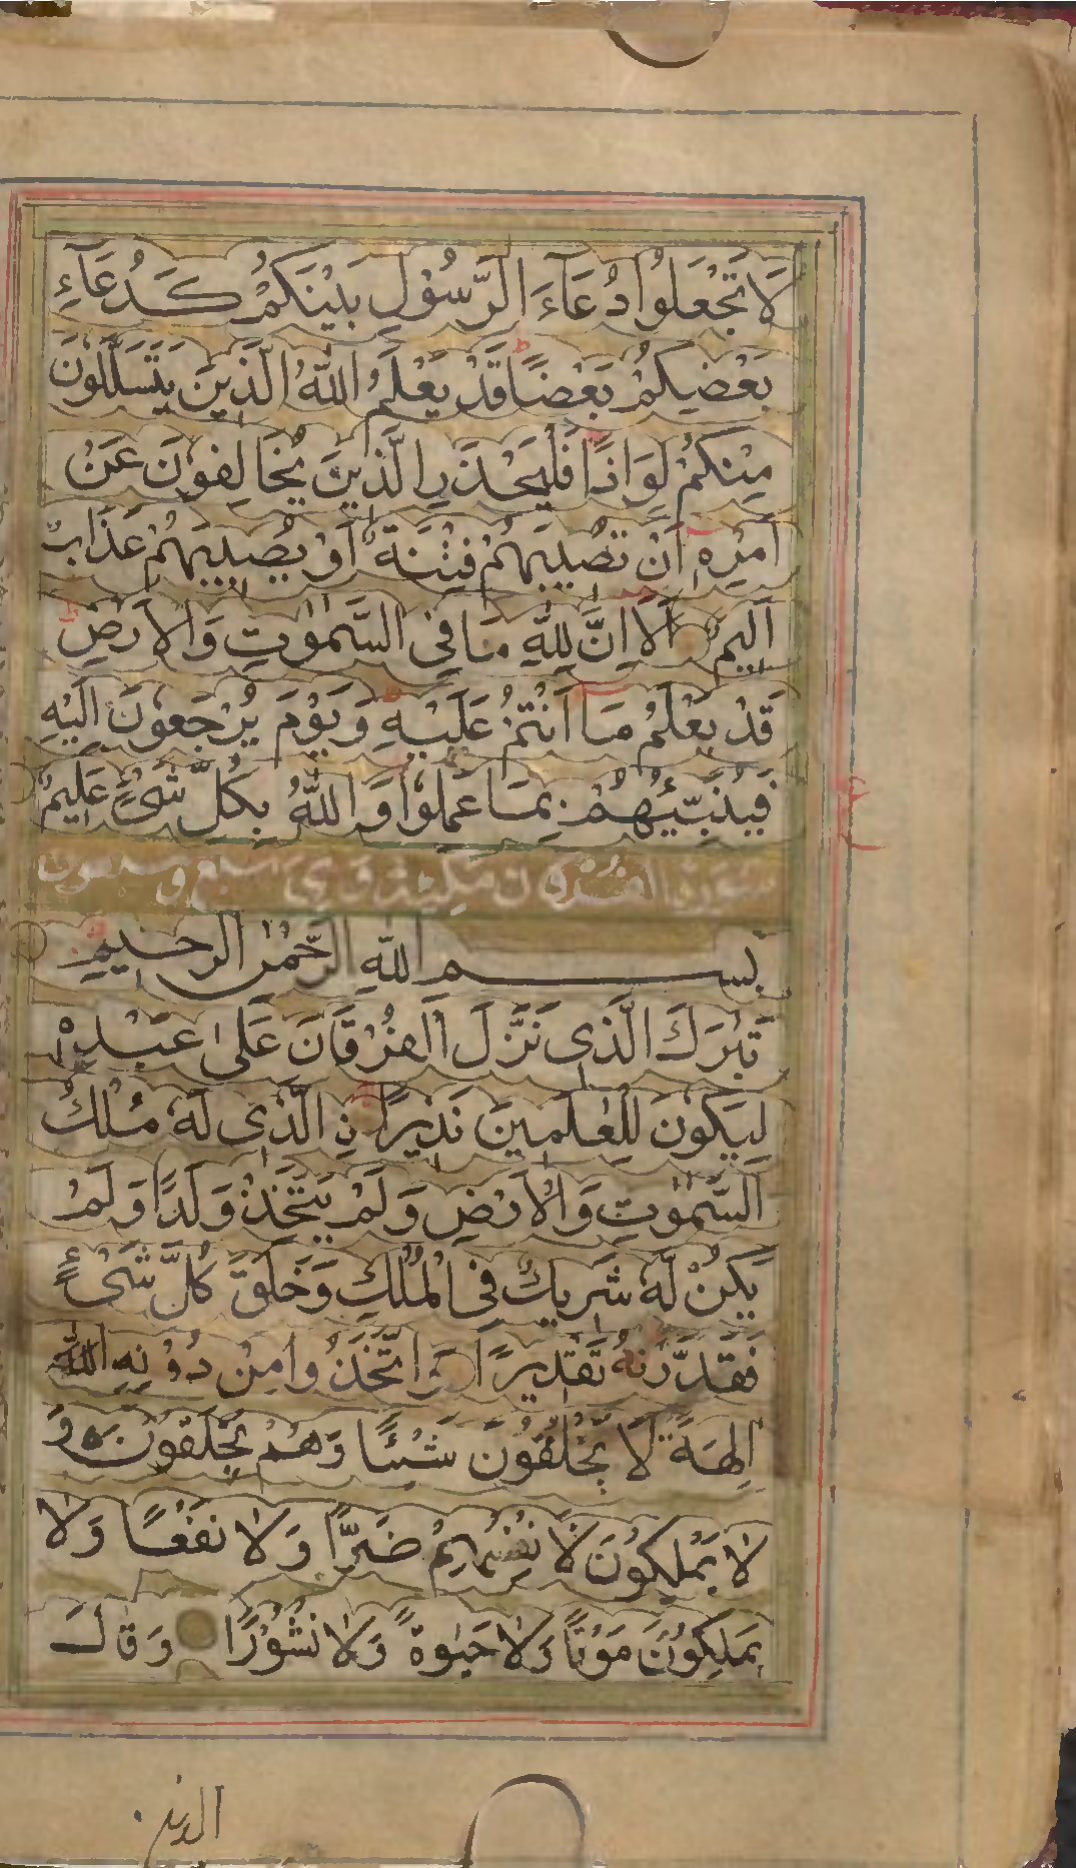 لَا تَجْعَلُوْا دُعَآءَ الرَّسُوْلِ بَيْنَكُمْ كَدُعَآءِ
بَعْضِكُمْ بَعْضًا ط قَدْ يَعْلَمُ اللّٰهُ الَّذِيْنَ يَتَسَلَّلُوْنَ
مِنْكُمْ لِوَاذًا فَلْيَحْذَرِ الَّذِيْنَ يُخَالِفُوْنَ عَنْ
اَمْرِهٖ اَنْ تُصِيْبَهُمْ فِتْنَةٌ اَوْ يُصِيْبَهُمْ عَذَابٌ
اَلِيْمٌ اَلَا اِنَّ لِلّٰهِ مَا فِی السَّمٰوٰتِ وَالْاَرْضِ ط
قَدْ يَعْلَمُ مَا اَنْتُمْ عَلَيْهِ ط وَيَوْمَ يُرْجَعُوْنَ اِلَيْهِ
فَيُنَبِّئُهُمْ بِمَا عَمِلُوْا وَاللّٰهُ بِكُلِّ شَیْءٍ عَلِيْمٌ
سورة الفرقان مكية وهي سبع وسبعون
بِسْمِ اللّٰهِ الرَّحْمٰنِ الرَّحِيْمِ
تَبٰرَكَ الَّذِی نَزَّلَ الْفُرْقَانَ عَلٰی عَبْدِهٖ
لِيَكُوْنَ لِلْعٰلَمِيْنَ نَذِيْرًا نِ الَّذِی لَهٗ مُلْكُ
السَّمٰوٰتِ وَالْاَرْضِ وَلَمْ يَتَّخِذْ وَلَدًا وَلَمْ
يَكُنْ لَّهٗ شَرِيْكٌ فِی الْمُلْكِ وَخَلَقَ كُلَّ شَیْءٍ
فَقَدَّرَهٗ تَقْدِيْرًا وَاتَّخَذُوْا مِنْ دُوْنِهِ اللّٰه
اٰلِهَةً لَا يَخْلُقُوْنَ شَيْئًا وَهُمْ يُخْلَقُوْنَ وَ
لَا يَمْلِكُوْنَ لِاَنْفُسِهِمْ ضَرًّا وَلَا نَفْعًا وَلَا
يَمْلِكُوْنَ مَوْتًا وَلَا حَيٰوةً وَلَا نُشُوْرًا وَقَالَ
الذين